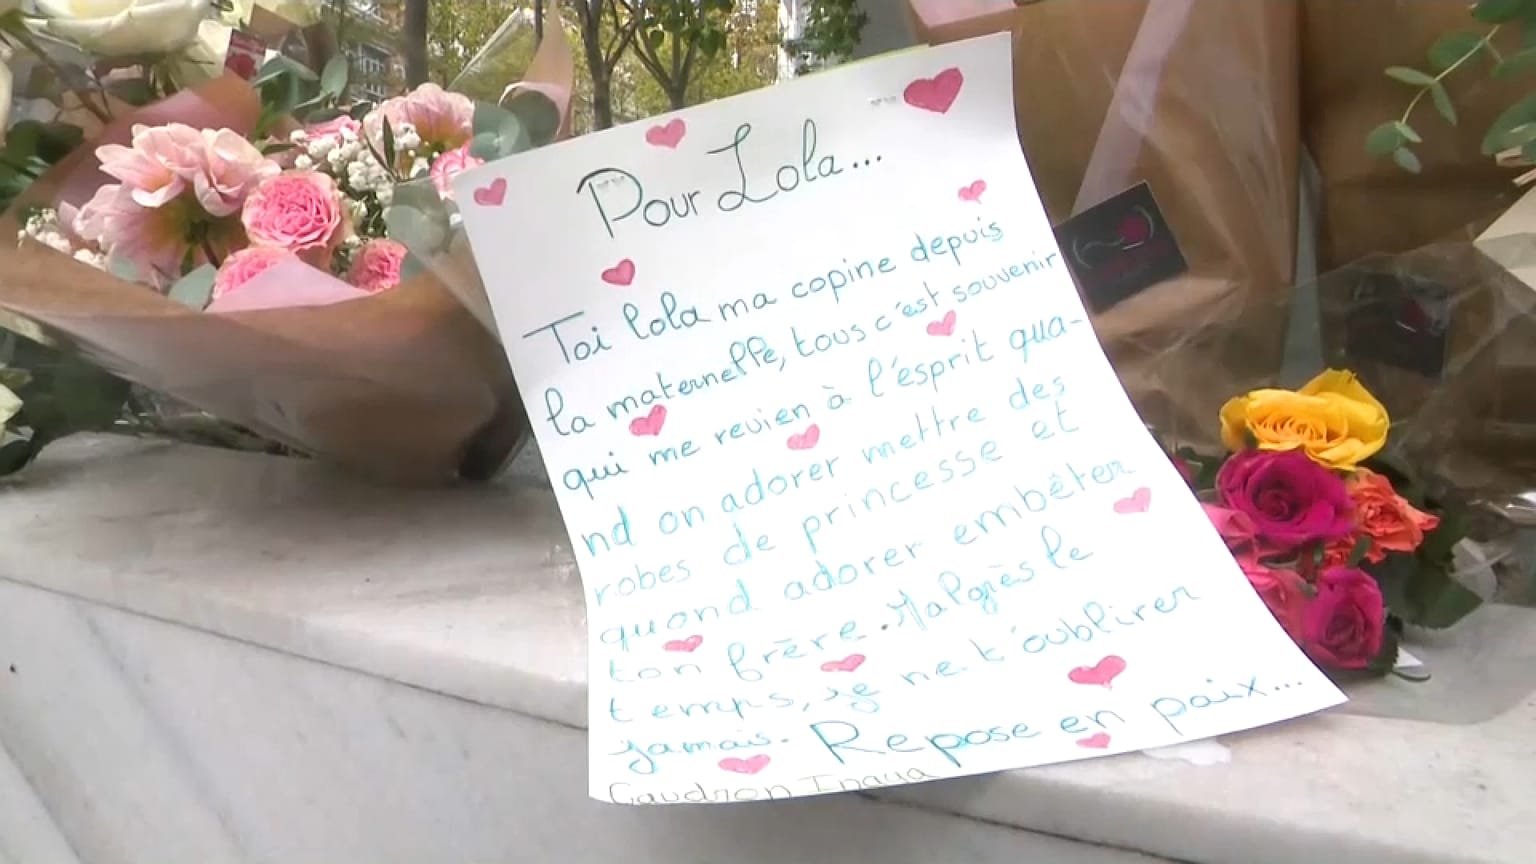 Pour Lola...
Toi lola ma copine depuis
la maternelle, tous c'est souvenir
qui me revien à l'esprit qua-
nd on adorer mettre des
robes de princesse et
quand adorer embêter
ton frère. Malgrès le
temps, je ne t'oublirer
jamais. Repose en paix...
Gaudron